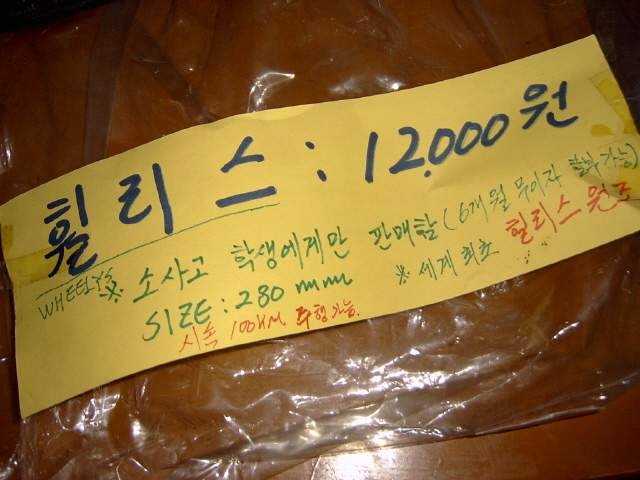 휠리스 : 12,000원
WHEELY'S
※ 소사고 학생에게만 판매함 (6개월 무이자 할부 가능)
SIZE : 280 mm
※ 세계 최초 힐리스 원조
시속 100km 주행가능.